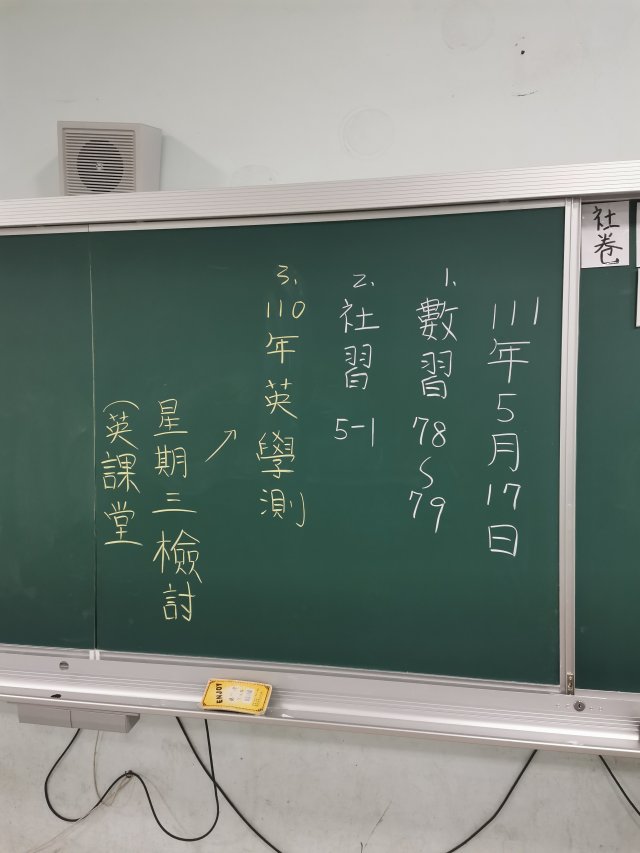 111年5月17日
1.數習78~79
2.社習5-1
3.110年英學測
↗星期三檢討
(英課堂
社卷
ENJOY